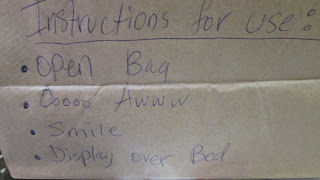 Instructions for use:
• Open Bag
• Ooooo Awww
• Smile
• Display over Bed